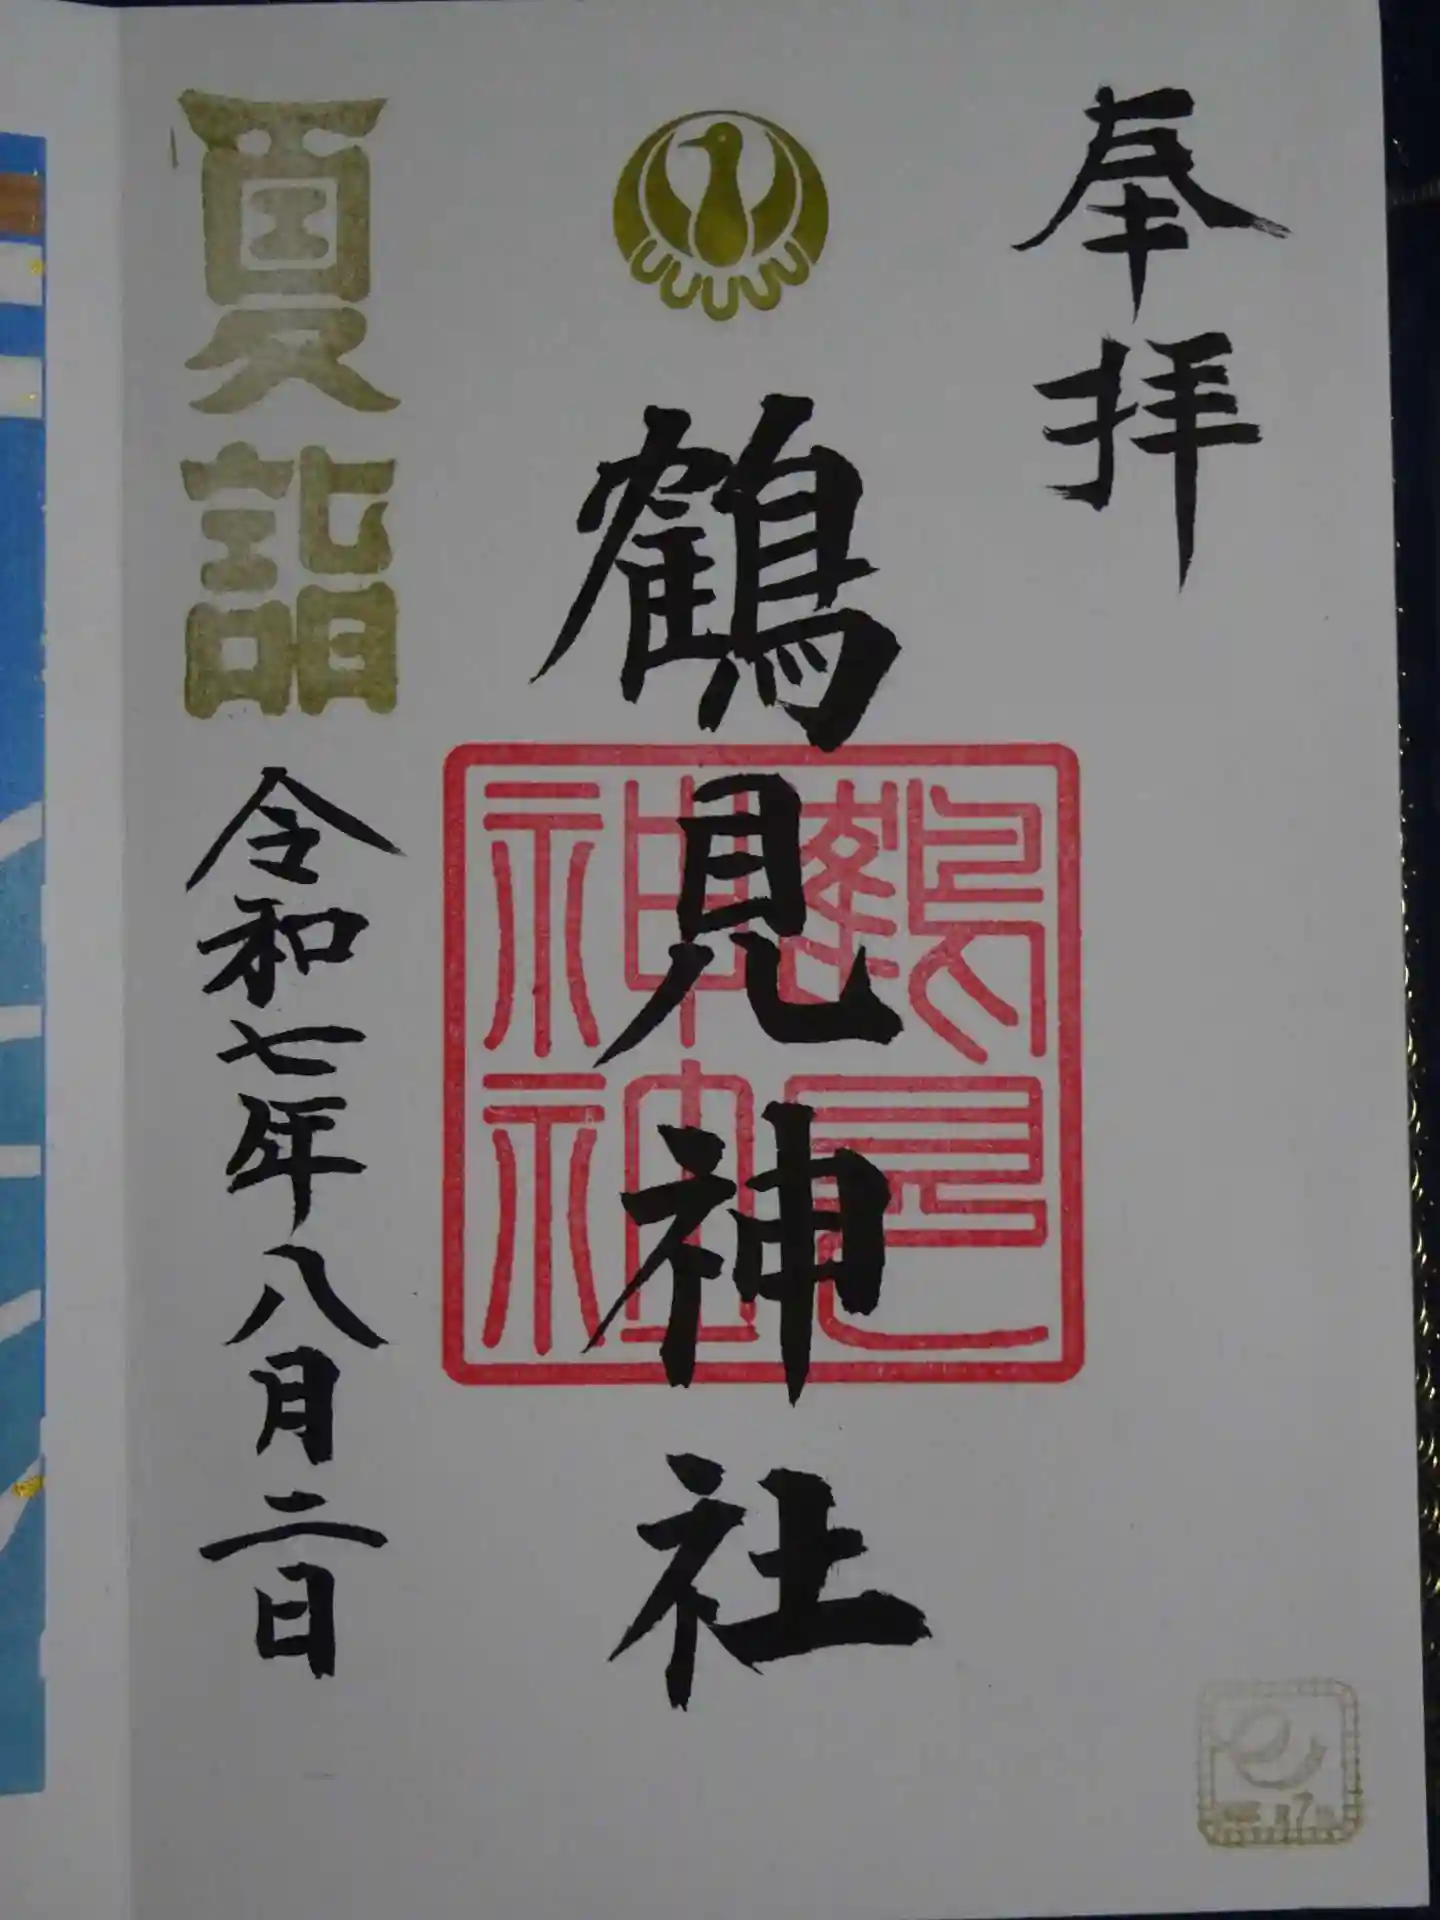 奉拝
鶴見神社
鶴見
神社
夏詣
令和七年八月二日